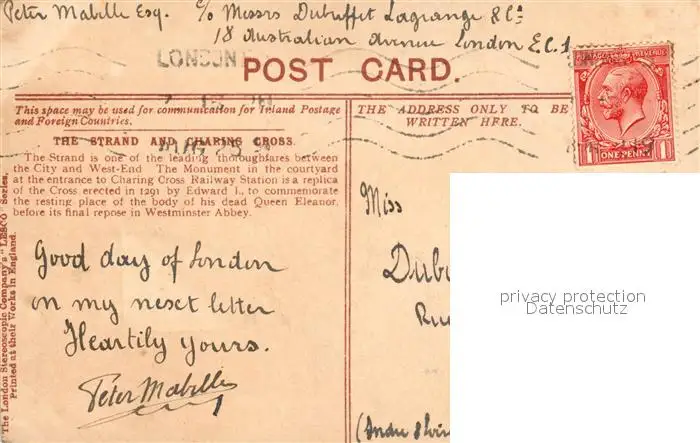 Peter Mabille Esq. c/o Messrs Dubuffet Lagrange & Co
18 Australian Avenue London E.C.1
LONDON
POST CARD.
POSTAGE REVENUE
1 ONE PENNY 1
This space may be used for communication for Inland Postage
and Foreign Countries.
THE STRAND AND CHARING CROSS.
The Strand is one of the leading thoroughfares between
the City and West-End. The Monument in the courtyard
at the entrance to Charing Cross Railway Station is a replica
of the Cross erected in 1291 by Edward I., to commemorate
the resting place of the body of his dead Queen Eleanor,
before its final repose in Westminster Abbey.
Good day of London
on my next letter
Heartily yours.
Peter Mabille
The London Stereoscopic Company's "LESCO" Series.
Printed at their Works in England.
THE ADDRESS ONLY TO BE
WRITTEN HERE.
Miss
Dubu
Ru
(Indre & Loir
privacy protection
Datenschutz